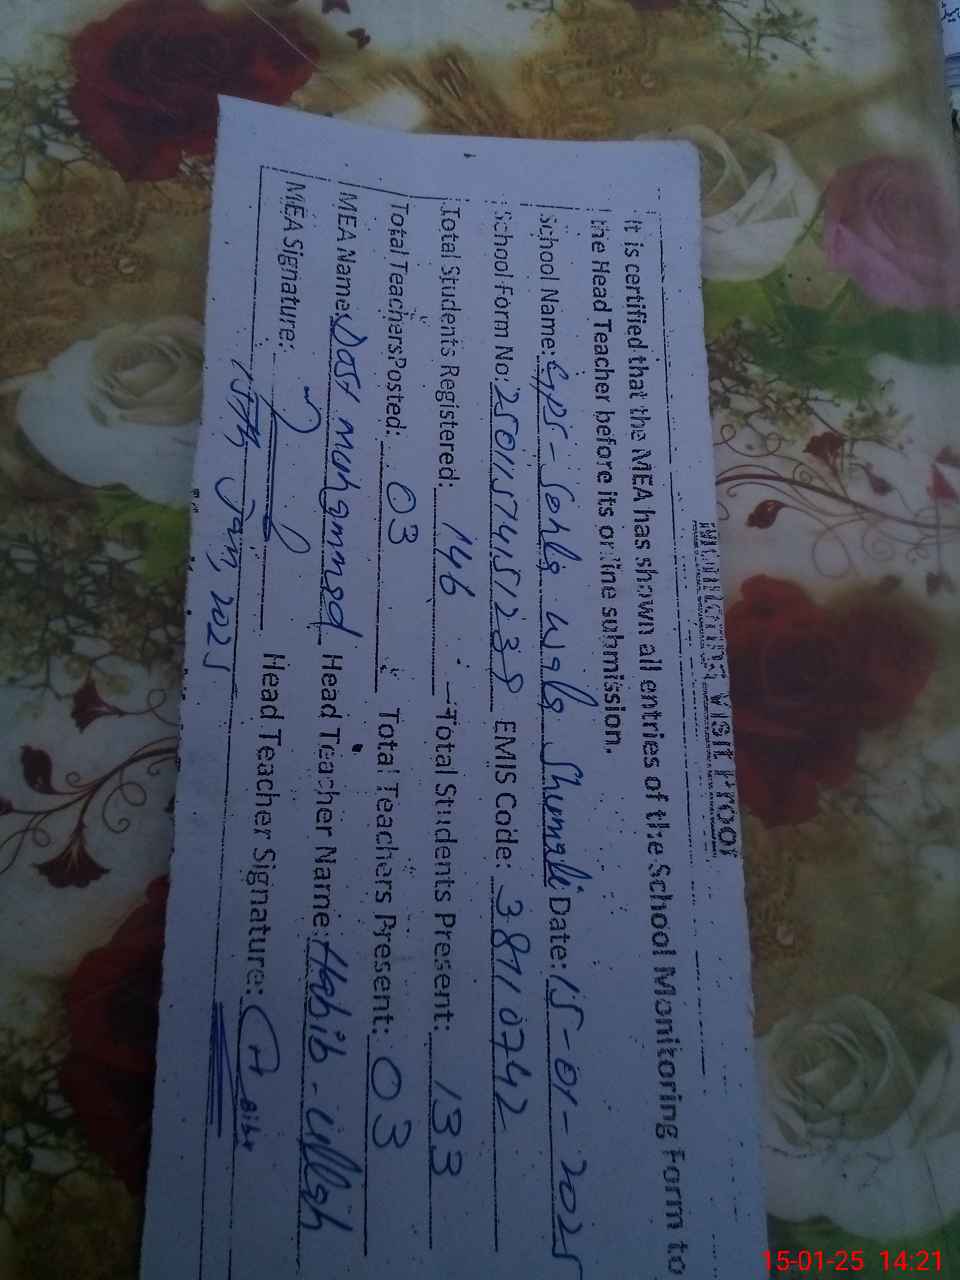 Monitoring Visit Proof
It is certified that the MEA has shown all entries of the School Monitoring Form to
the Head Teacher before its online submission.
School Name: GPS - Sohla wala Shumali Date: 15-01-2025
School Form No: 25011574151238 EMIS Code: 38710742
Total Students Registered: 146 Total Students Present: 133
Total Teachers Posted: 03 Total Teachers Present: 03
MEA Name: Dost muhammad Head Teacher Name: Habib-ullah
MEA Signature: Head Teacher Signature:
15th Jan, 2025
15-01-25 14:21